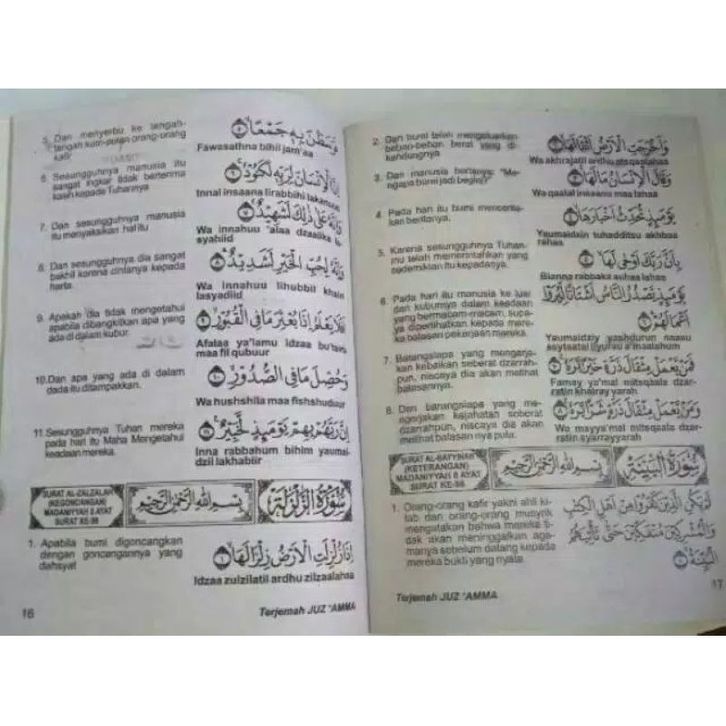 5. Dan menyerbu ke tengah-
tengah kumpulan orang-orang
kafir
فَوَسَطْنَ بِهِ جَمْعًا ٥
Fawasathna bihii jam'aa
6. Sesungguhnya manusia itu
sangat ingkar tidak berterima
kasih kepada Tuhannya
اِنَّ الْاِنْسَانَ لِرَبِّهِ لَكَنُوْدٌ ٦
Innal insaana lirabbihii
7. Dan sesungguhnya manusia
itu menyaksikan hal itu
وَاِنَّهُ عَلٰى ذٰلِكَ لَشَهِيْدٌ ٧
Wa innahuu 'alaa dzaalika la-
syahiid
8. Dan sesungguhnya dia sangat
bakhil karena cintanya kepada
harta.
وَاِنَّهُ لِحُبِّ الْخَيْرِ لَشَدِيْدٌ ٨
Wa innahuu lihubbil khairi
lasyadiid
9. Apakah dia tidak mengetahui
apabila dibangkitkan apa yang
ada di dalam kubur.
اَفَلَا يَعْلَمُ اِذَا بُعْثِرَ مَا فِى الْقُبُوْرِ ٩
Afalaa ya'lamu Idzaa bu'tsira
maa fil qubuur
10. Dan apa yang ada di dalam
dada itu ditampakkan.
وَحُصِّلَ مَا فِى الصُّدُوْرِ ١٠
Wa hushshila maa fishshuduur
11. Sesungguhnya Tuhan mereka
pada hari itu Maha Mengetahui
keadaan mereka.
اِنَّ رَبَّهُمْ بِهِمْ يَوْمَئِذٍ لَخَبِيْرٌ ١١
Inna rabbahum bihim yaumai-
dzil lakhabiir
SURAT AL-ZALZALAH
(KEGONCANGAN)
MADANIYYAH 8 AYAT
SURAT KE-99
بِسْمِ اللهِ الرَّحْمٰنِ الرَّحِيْمِ
سُوْرَةُ الزَّلْزَلَةِ
1. Apabila bumi digoncangkan
dengan goncangannya yang
dahsyat
اِذَا زُلْزِلَتِ الْاَرْضُ زِلْزَالَهَا ١
Idzaa zulzilatil ardhu zilzaalahaa
16
Terjemah JUZ 'AMMA
2. Dan bumi telah mengeluarkan
beban-beban berat yang di-
kandungnya
وَاَخْرَجَتِ الْاَرْضُ اَثْقَالَهَا ٢
Wa akhrajatil ardhu atsqaalahaa
3. Dan manusia bertanya: "Me-
ngapa bumi jadi begini?"
وَقَالَ الْاِنْسَانُ مَالَهَا ٣
Wa qaalal insaanu maa lahaa
4. Pada hari itu bumi mencerita-
kan beritanya.
يَوْمَئِذٍ تُحَدِّثُ اَخْبَارَهَا ٤
Yaumaidzin tuhadditsu akhbaa
rahaa
5. Karena sesungguhnya Tuhan-
mu telah memerintahkan yang
sedemikian itu kepadanya.
بِاَنَّ رَبَّكَ اَوْحٰى لَهَا ٥
Bianna rabbaka auhaa lahaa
6. Pada hari itu manusia ke luar
dari kuburnya dalam keadaan
yang bermacam-macam, supa-
ya diperlihatkan kepada mere-
ka balasan pekerjaan mereka.
يَوْمَئِذٍ يَصْدُرُ النَّاسُ اَشْتَاتًا لِيُرَوْا
اَعْمَالَهُمْ ٦
Yaumaidziy yashdurun naasu
asytaatal liyurau a'maalahum
7. Barangsiapa yang mengerja-
kan kebaikan seberat dzarrah-
pun, niscaya dia akan melihat
balasannya.
فَمَنْ يَعْمَلْ مِثْقَالَ ذَرَّةٍ خَيْرًا يَرَهُ ٧
Famay ya'mal mitsqaala dzar-
ratin khairay yarah
8. Dan barangsiapa yang me-
ngerjakan kejahatan seberat
dzarrahpun, niscaya dia akan
melihat balasan nya pula.
وَمَنْ يَعْمَلْ مِثْقَالَ ذَرَّةٍ شَرًّا يَرَهُ ٨
Wa mayya'mal mitsqaala dzar-
ratin syarrayyarah
SURAT AL-BAYYINAH
(KETERANGAN)
MADANIYYAH 8 AYAT
SURAT KE-98
بِسْمِ اللهِ الرَّحْمٰنِ الرَّحِيْمِ
سُوْرَةُ الْبَيِّنَةِ
1. Orang-orang kafir yakni ahli ki-
tab dan orang-orang musyrik
mengatakan bahwa mereka ti-
dak akan meninggalkan aga-
manya sebelum datang kepada
mereka bukti yang nyata.
لَمْ يَكُنِ الَّذِيْنَ كَفَرُوْا مِنْ اَهْلِ الْكِتٰبِ
وَالْمُشْرِكِيْنَ مُنْفَكِّيْنَ حَتّٰى تَأْتِيَهُمُ
الْبَيِّنَةُ ١
17
Terjemah JUZ 'AMMA